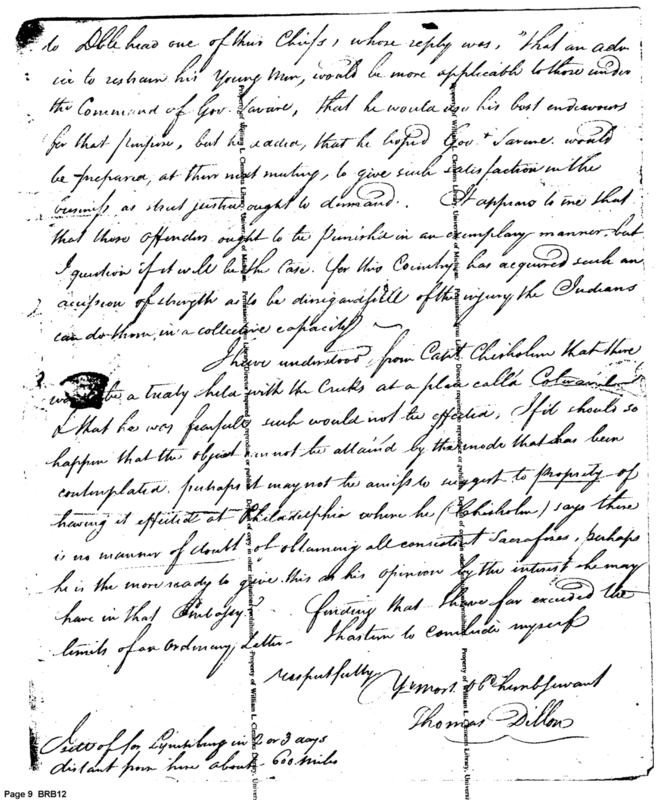 to Dble head one of their Chiefs, whose reply was, "that an adv
ice to restrain his Young Men, would be more applicable to those under
the Command of Gov. Savire, that he would use his best endeavours
for that purpose, but he added, that he hoped Gov.r Savire would
be prepared, at their next meeting, to give such satisfaction in the
business as strict justice ought to demand. It appears to me that
that those offenders ought to be Punish'd in an exemplary manner, but
I question if it will be the Case. for this Country has acquired such an
accession of strength as to be disregardfull of the injury the Indians
can do them in a collective capacity
I have understood from Capt Chisholm that there
be a treaty held with the Creeks at a place call'd
& that he was fearfull such would not be effected, If it should so
happen that the object cannot be attain'd by the mode that has been
contemplated, perhaps it may not be amiss to suggest to propriety of
having it effected at Philadelphia where he (Chisholm) says there
is no manner of doubt of obtaining all consistent Sacrafises, perhaps
he is the more ready to give this as his opinion by the interest he may
have in that Embassy. finding that I have far exceeded the
limits of an Ordinary Letter I hasten to conclude myself
respectfully
Yr most Ob hum servant
Thomas Dillon
I sett of for Lynchburg in 2 or 3 days
distant from here about 600 miles
Property of William L. Clements Library, University of Michigan.
Page 9 BRB12